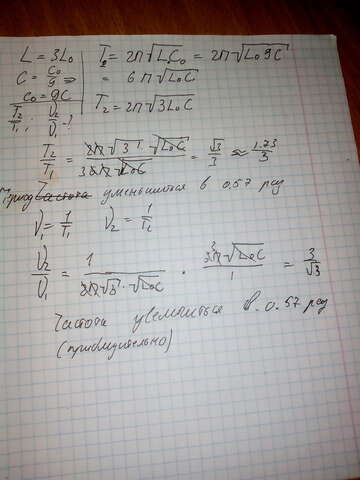 L = 3L₀
C = C₀/9
C₀ = 9C
T₂/T₁; ν₂/ν₁ - ?
T₁ = 2π√L₀C₀ = 2π√L₀9C
= 6π√L₀C
T₂ = 2π√3L₀C
T₂/T₁ = 2π√3 · √L₀C / 3 2π√L₀C = √3/3 ≈ 1.73/3
Период уменьшится в 0.57 раз
ν₁ = 1/T₁ ν₂ = 1/T₂
ν₂/ν₁ = 1 / 2π√3 · √L₀C · 3 2π√L₀C / 1 = 3/√3
Частота увеличиться в 0.57 раз
(приблизительно)